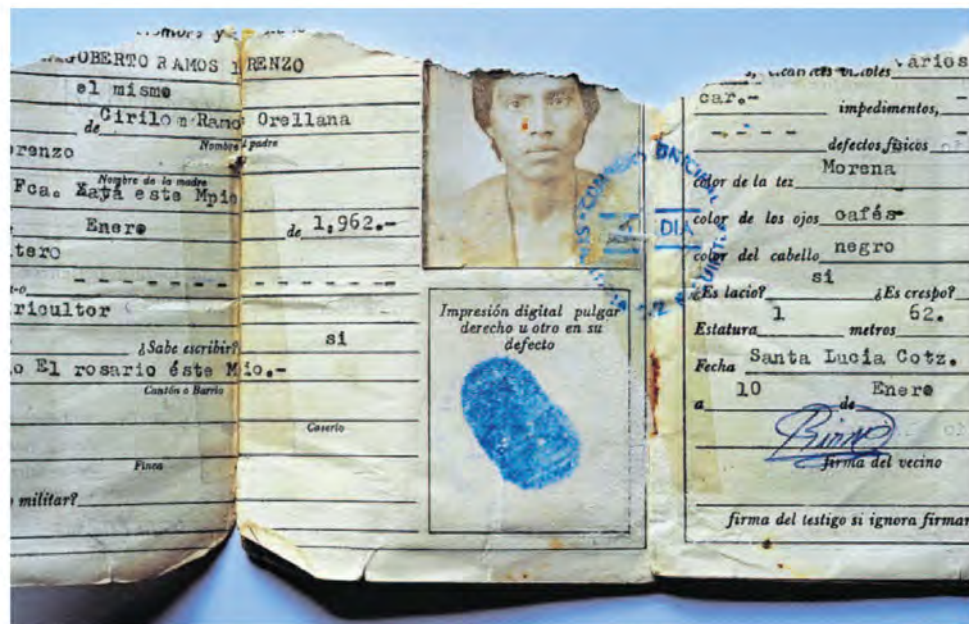 GOBERTO RAMOS RENZO
el mismo
de Cirilo Ramo Orellana
Nombre padre
orenzo
Nombre de la madre
Fca. Xayá este Mpio
Enero de 1,962.-
tero
- - - - - - - - - - - - - - -
ricultor
¿Sabe escribir? si
o El rosario éste Mio.-
Cantón o Barrio
Caserío
Finca
militar?
Impresión digital pulgar
derecho u otro en su
defecto
DIA
cicatrices visibles varios
car.- impedimentos,
- - - - - defectos físicos
color de la tez Morena
color de los ojos cafés
color del cabello negro
si
¿Es lacio? ¿Es crespo?
Estatura 1 metros 62.
Fecha Santa Lucía Cotz.
a 10 de Enero
firma del vecino
firma del testigo si ignora firmar